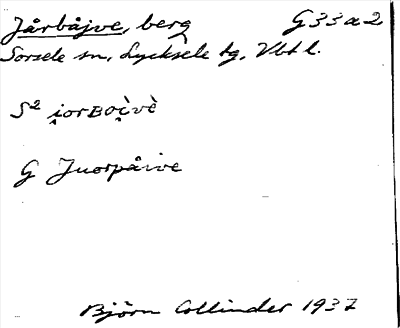 Jårbåjve, berg G33a2
Sorsele sn, Lycksele tg, Vbt l.
S² i̯orʙoì̯vè
G Juorpåive
Björn Collinder 1937